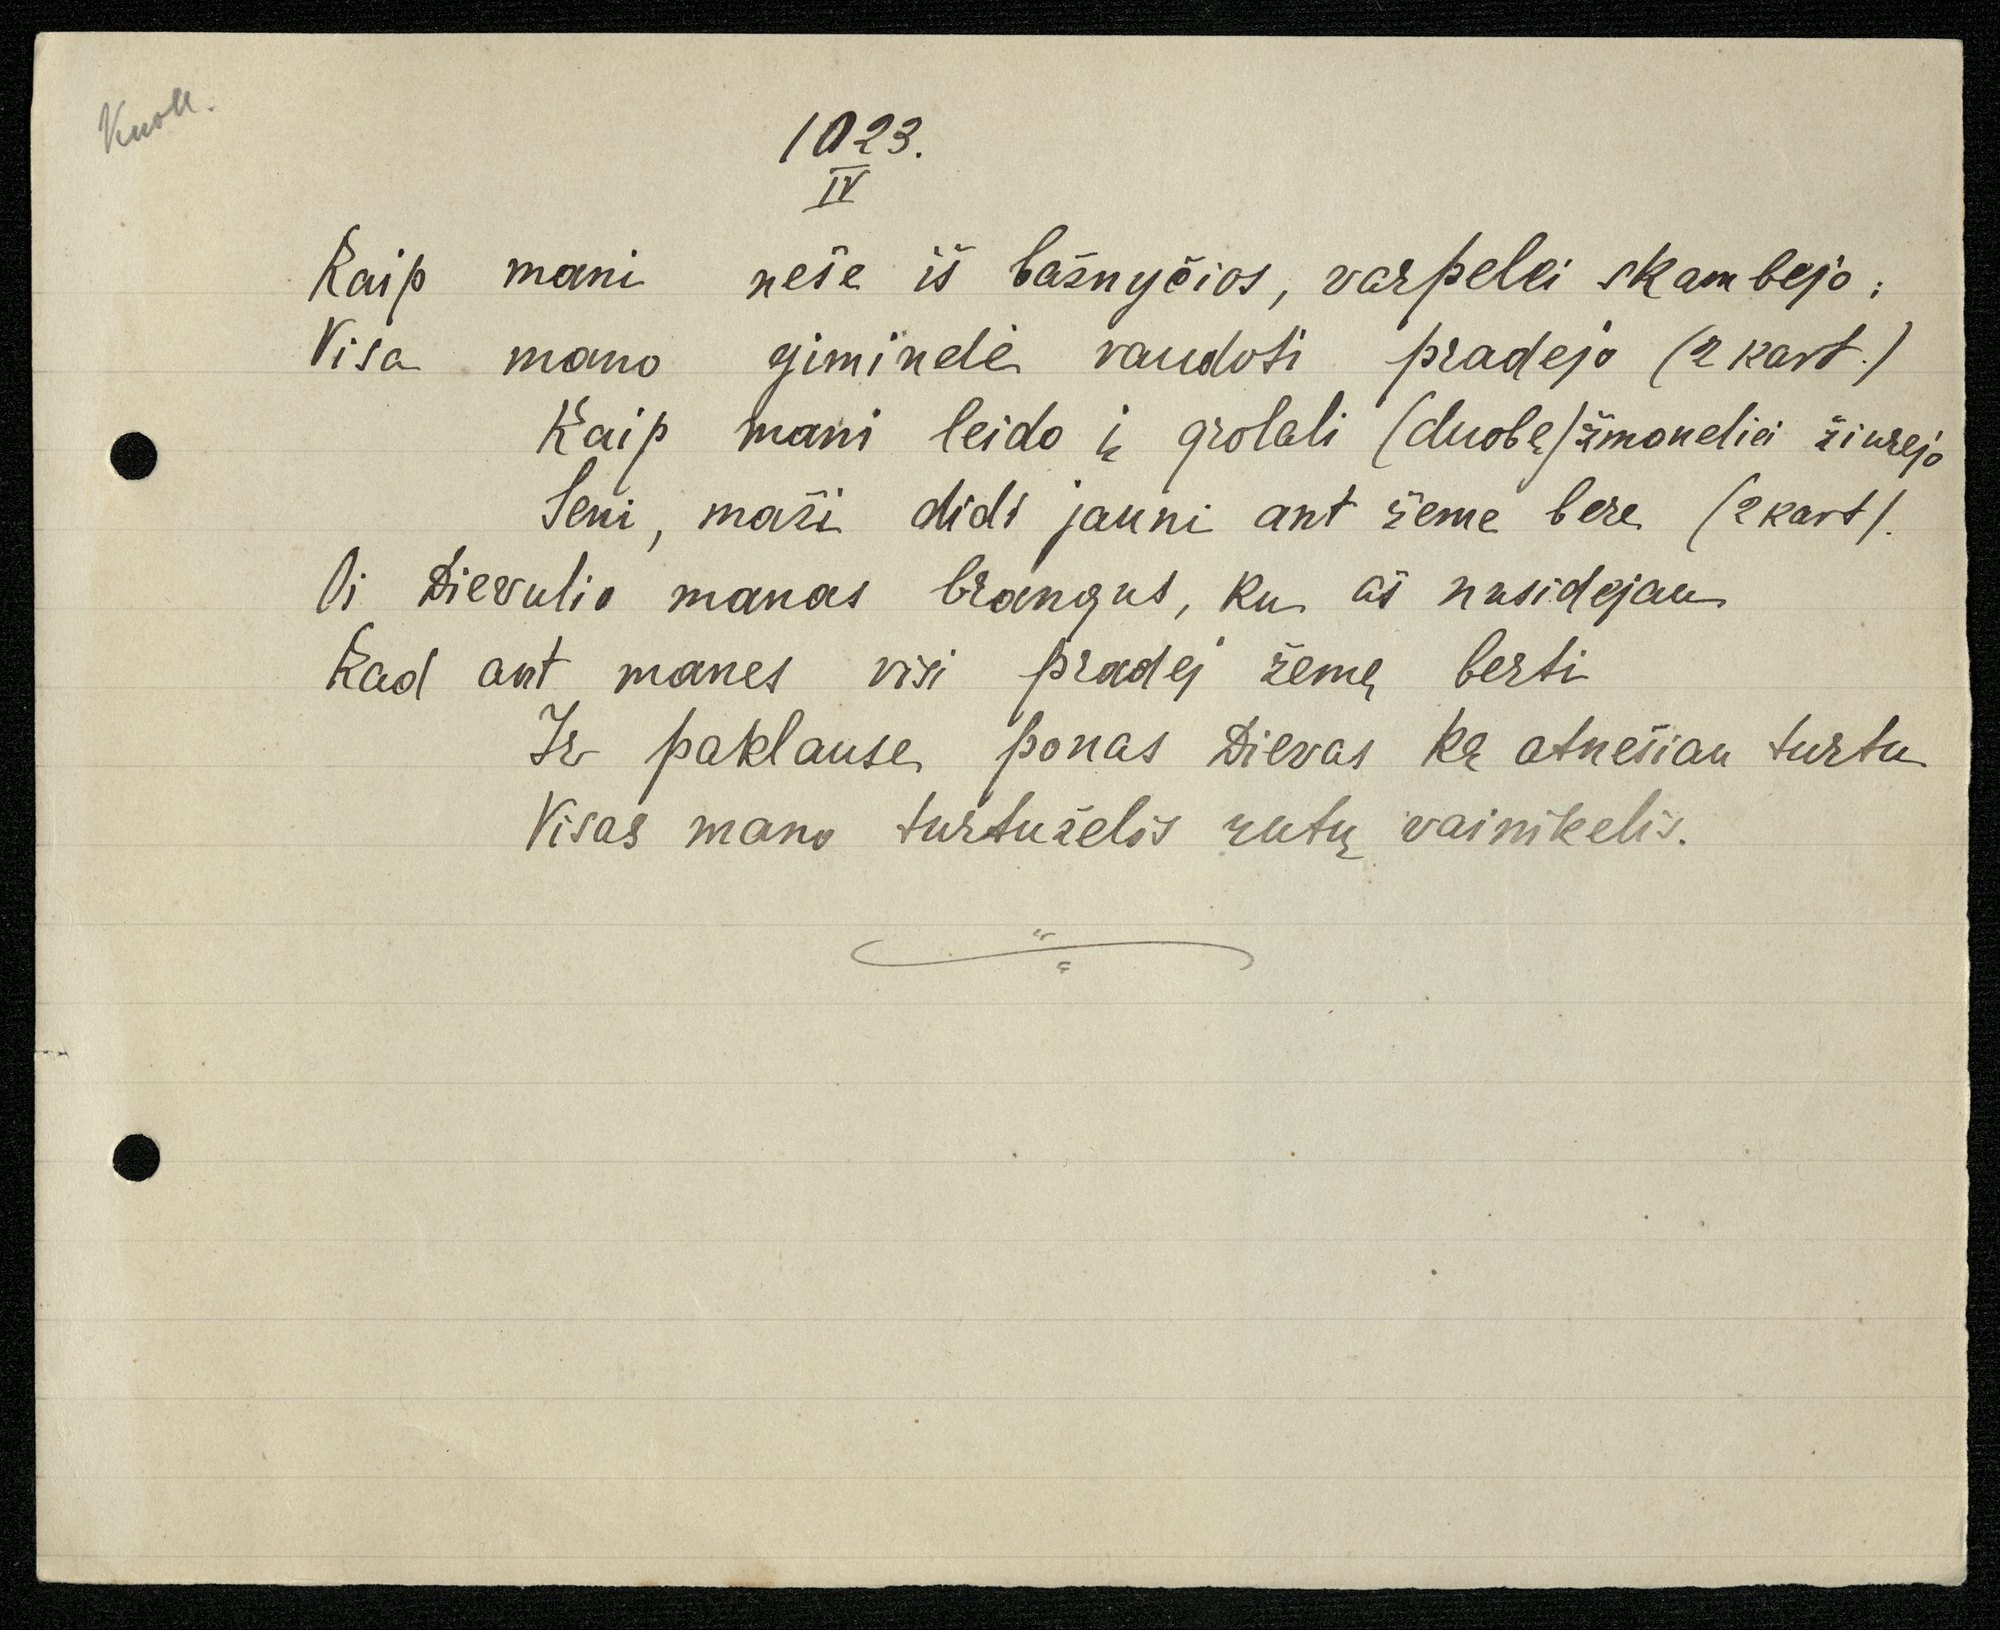 1023.
IV
Kaip mani neše iš bažnyčios, varpelei skambejo;
Visa mano giminelė raudoti pradejo (2 kart.)
Kaip mani leido į grolali (duobę) žmoneliei žiurejo
Seni, maži didi jauni ant žeme bere (2 kart).
Oi Dievulio manas brangus, ku aš nusidejau
Kad ant manes visi pradej žemę berti
Ir paklause ponas Dievas ką atnešiau turtu
Visas mano turtuželis rutų vainikelis.